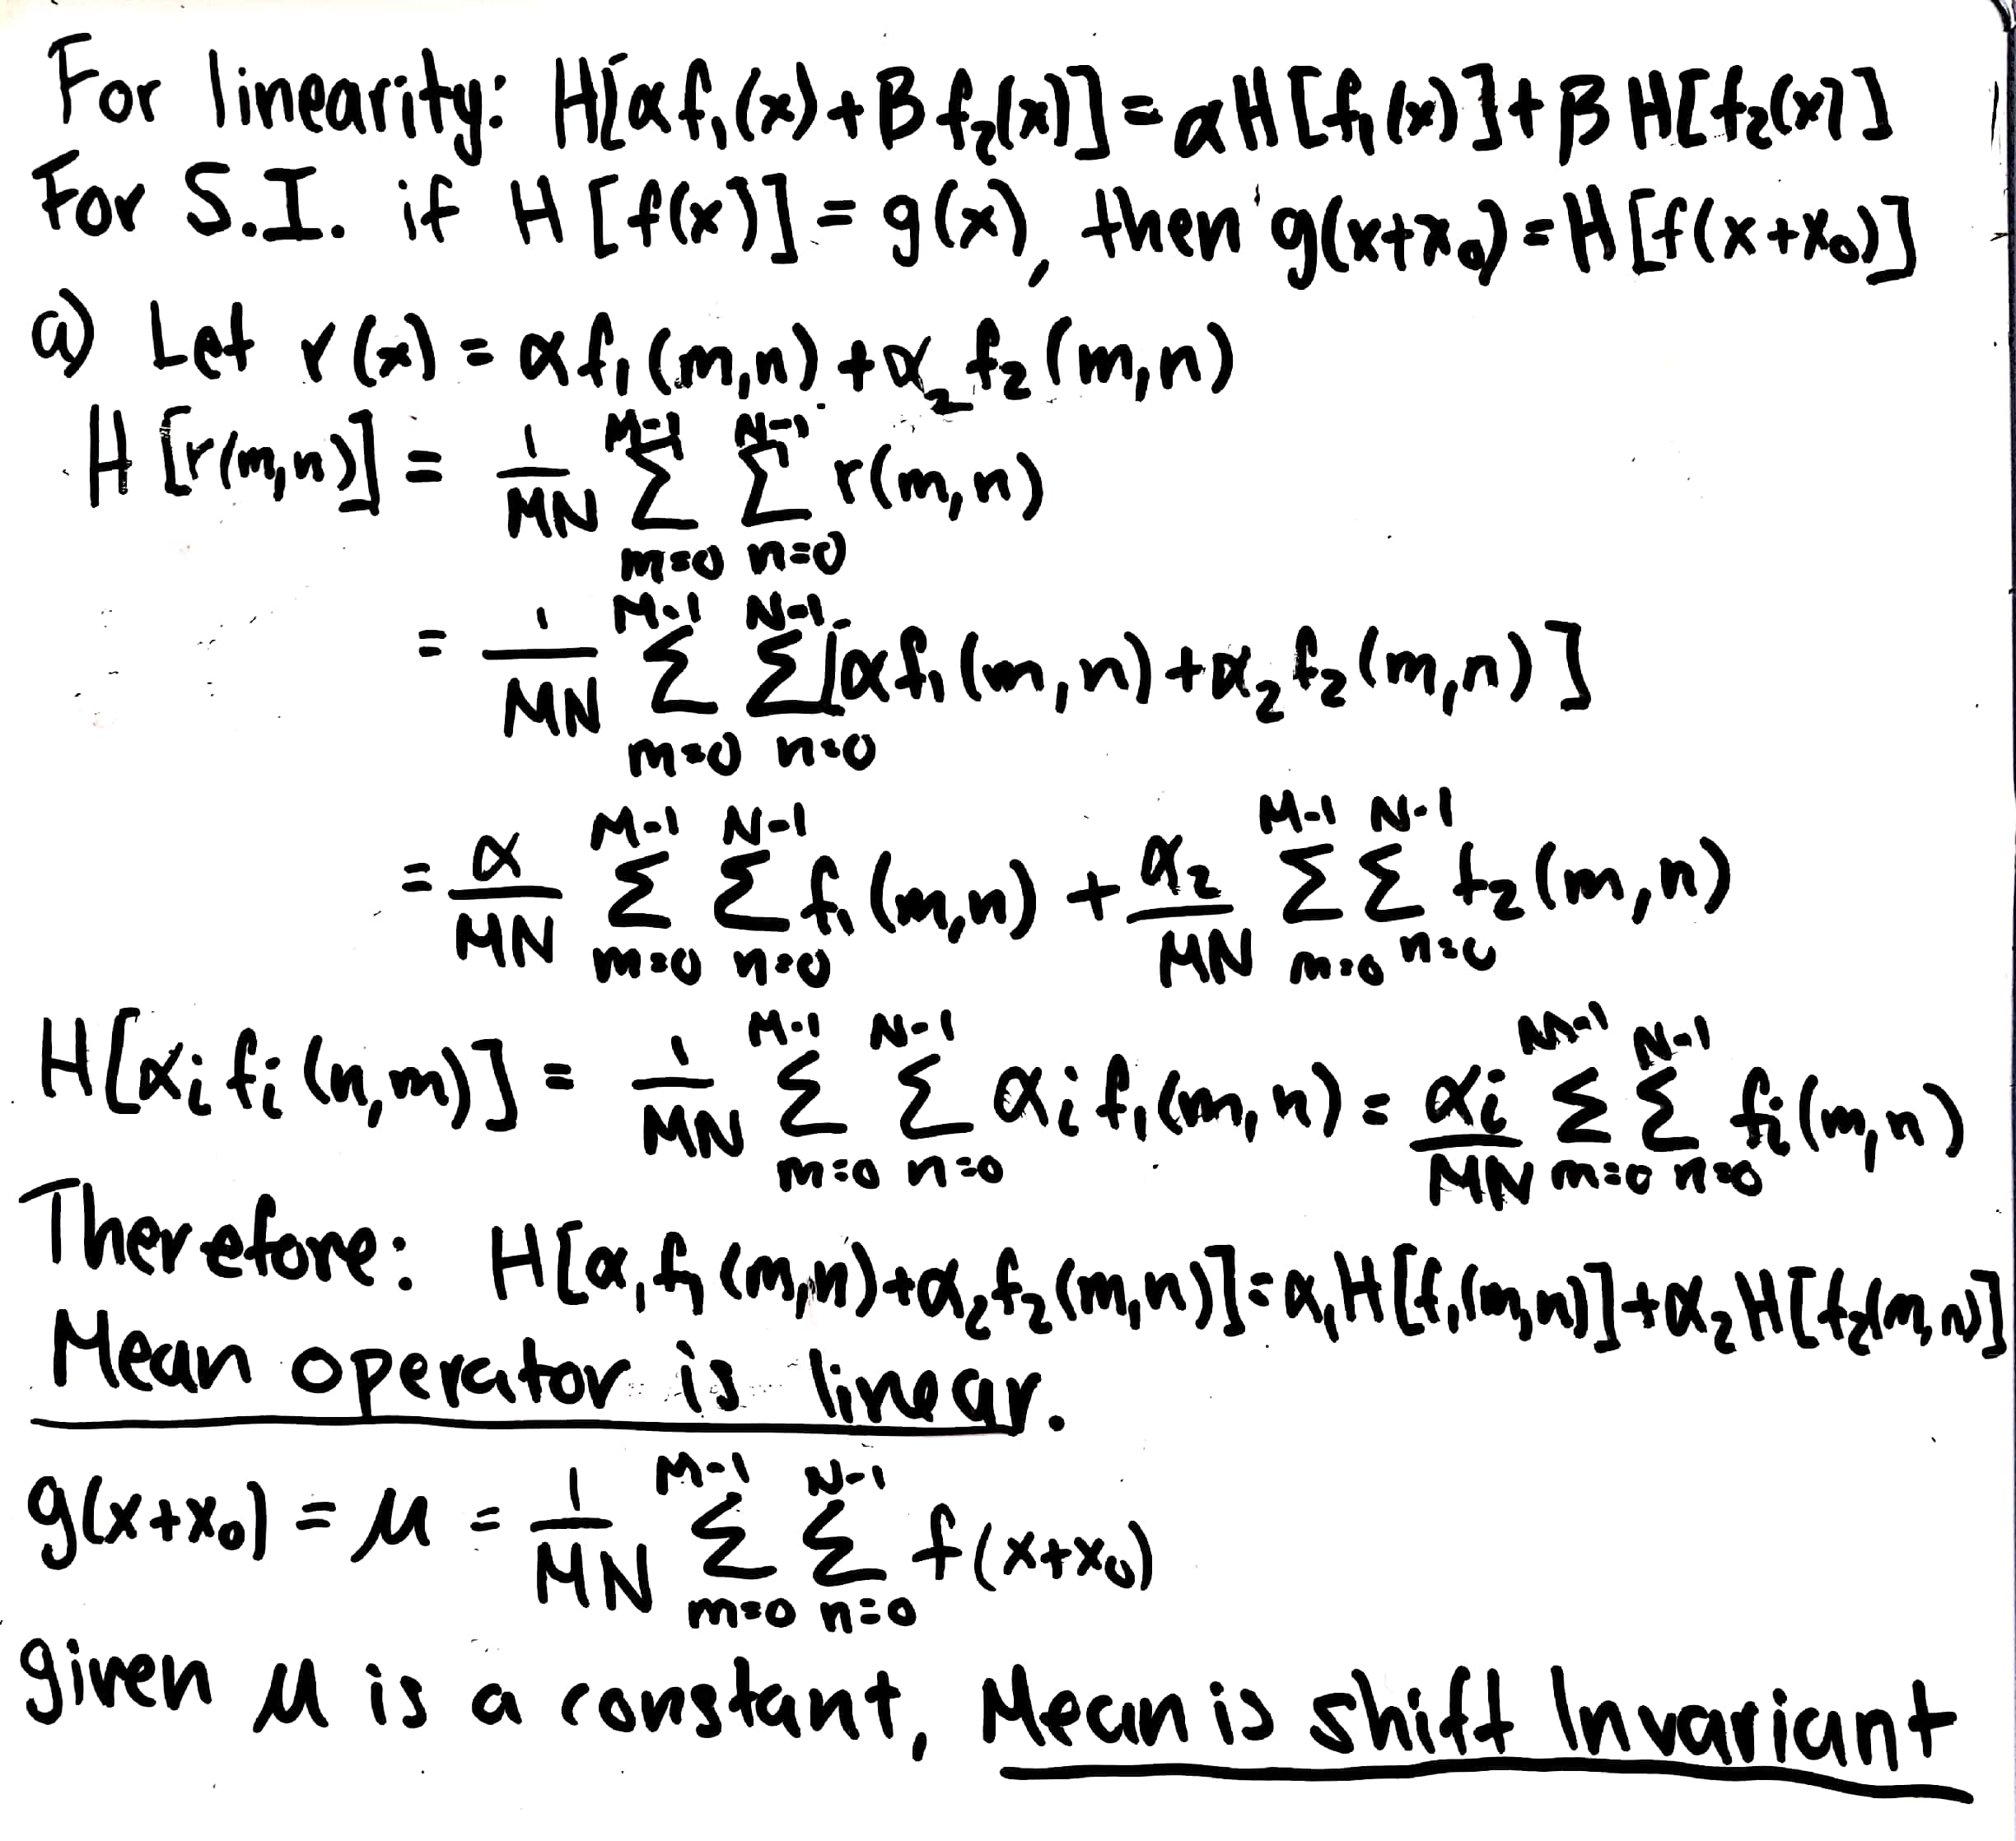 For linearity: H[αf₁(x)+Bf₂(x)]=αH[f₁(x)]+βH[f₂(x)]
For S.I. if H[f(x)]=g(x), then g(x+x₀)=H[f(x+x₀)]
a) Let r(x)=αf₁(m,n)+α₂f₂(m,n)
H[r(m,n)] = 1/MN Σ_{m=0}^{M-1} Σ_{n=0}^{N-1} r(m,n)
= 1/MN Σ_{m=0}^{M-1} Σ_{n=0}^{N-1} [αf₁(m,n)+α₂f₂(m,n)]
= α/MN Σ_{m=0}^{M-1} Σ_{n=0}^{N-1} f₁(m,n) + α₂/MN Σ_{m=0}^{M-1} Σ_{n=0}^{N-1} f₂(m,n)
H[αᵢfᵢ(n,m)] = 1/MN Σ_{m=0}^{M-1} Σ_{n=0}^{N-1} αᵢf₁(m,n) = αᵢ/MN Σ_{m=0}^{M-1} Σ_{n=0}^{N-1} fᵢ(m,n)
Therefore: H[α₁f₁(m,n)+α₂f₂(m,n)]=α₁H[f₁(m,n)]+α₂H[f₂(m,n)]
Mean operator is linear.
g(x+x₀) = μ = 1/MN Σ_{m=0}^{M-1} Σ_{n=0}^{N-1} f(x+x₀)
given μ is a constant, Mean is shift Invariant